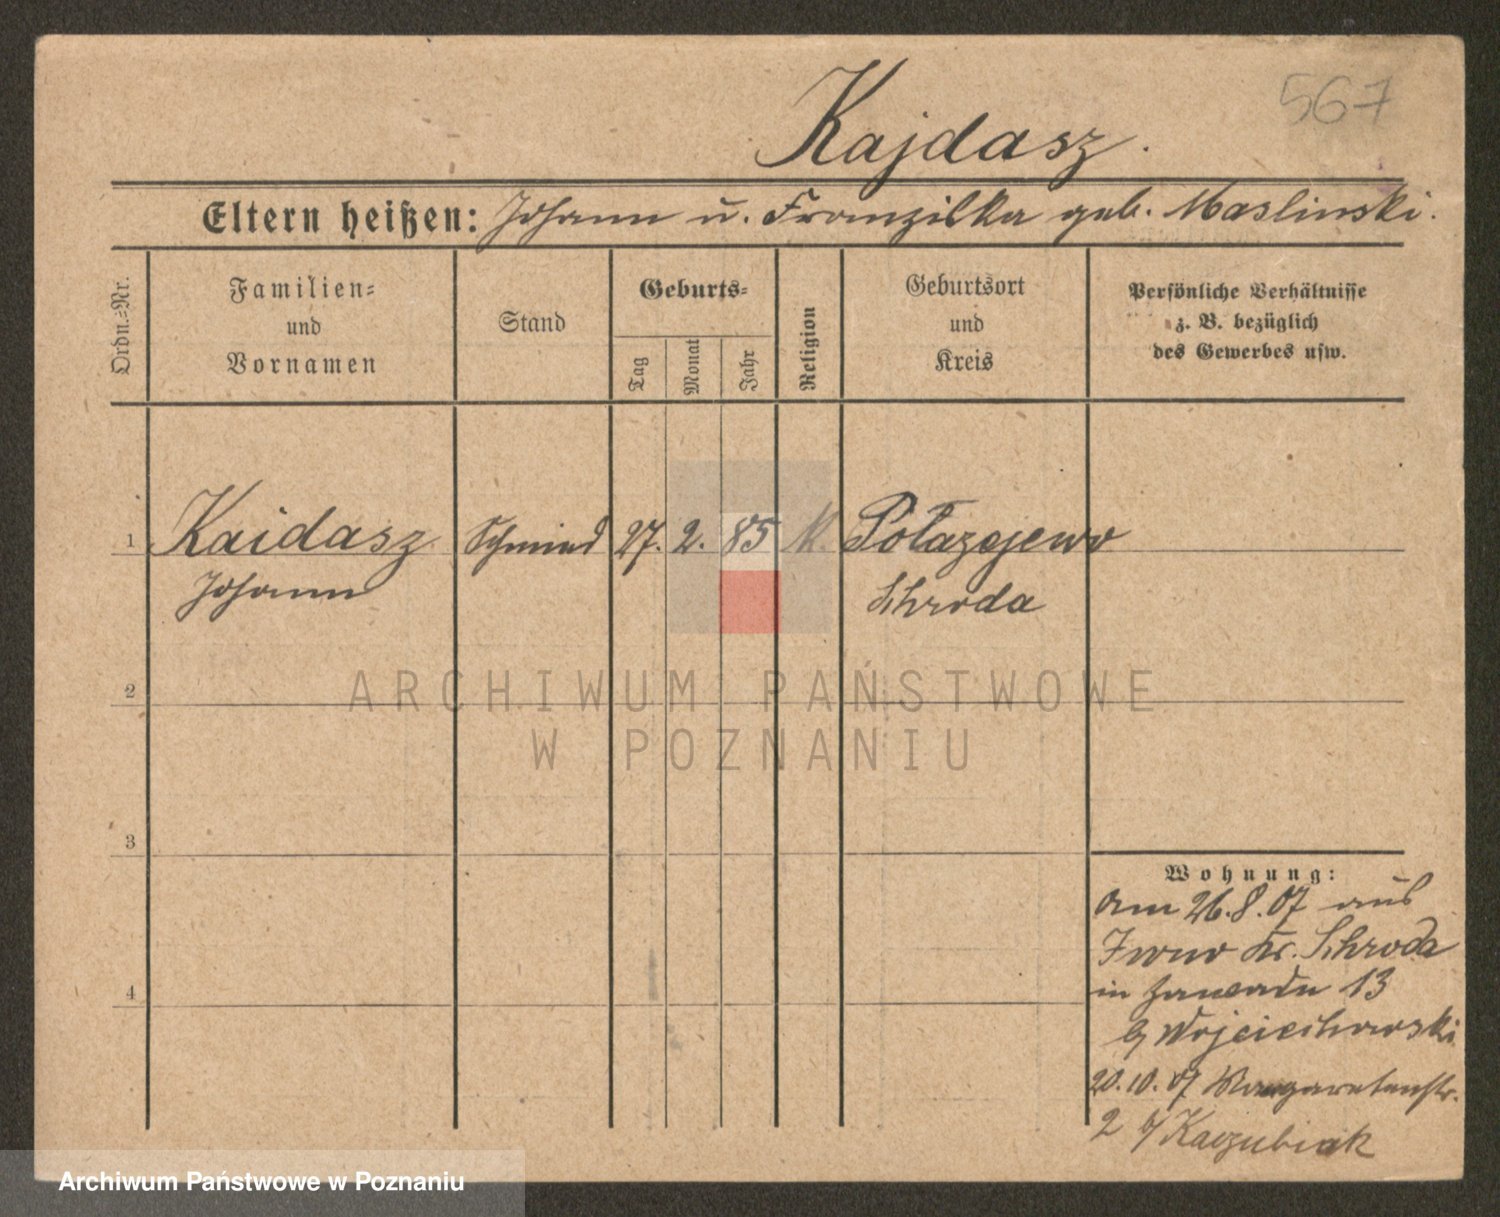 567
Kajdasz.
Eltern heißen: Johann u. Franziska geb. Maslinski.
Ordn.-Nr.
Familien-
und
Vornamen
Stand
Geburts-
Tag
Monat
Jahr
Religion
Geburtsort
und
Kreis
Persönliche Verhältnisse
z. B. bezüglich
des Gewerbes usw.
1 Kaidasz Schmied 27. 2. 85 K. Polazejewo
Johann Schroda
2
ARCHIWUM PAŃSTWOWE
W POZNANIU
3
Wohnung:
am 26.8.07 aus
Iwno Kr. Schroda
4
in Zawade 13
b/ Wojciechowski
20.10.07 Margaretenstr.
2 b/ Kaczubiak
Archiwum Państwowe w Poznaniu